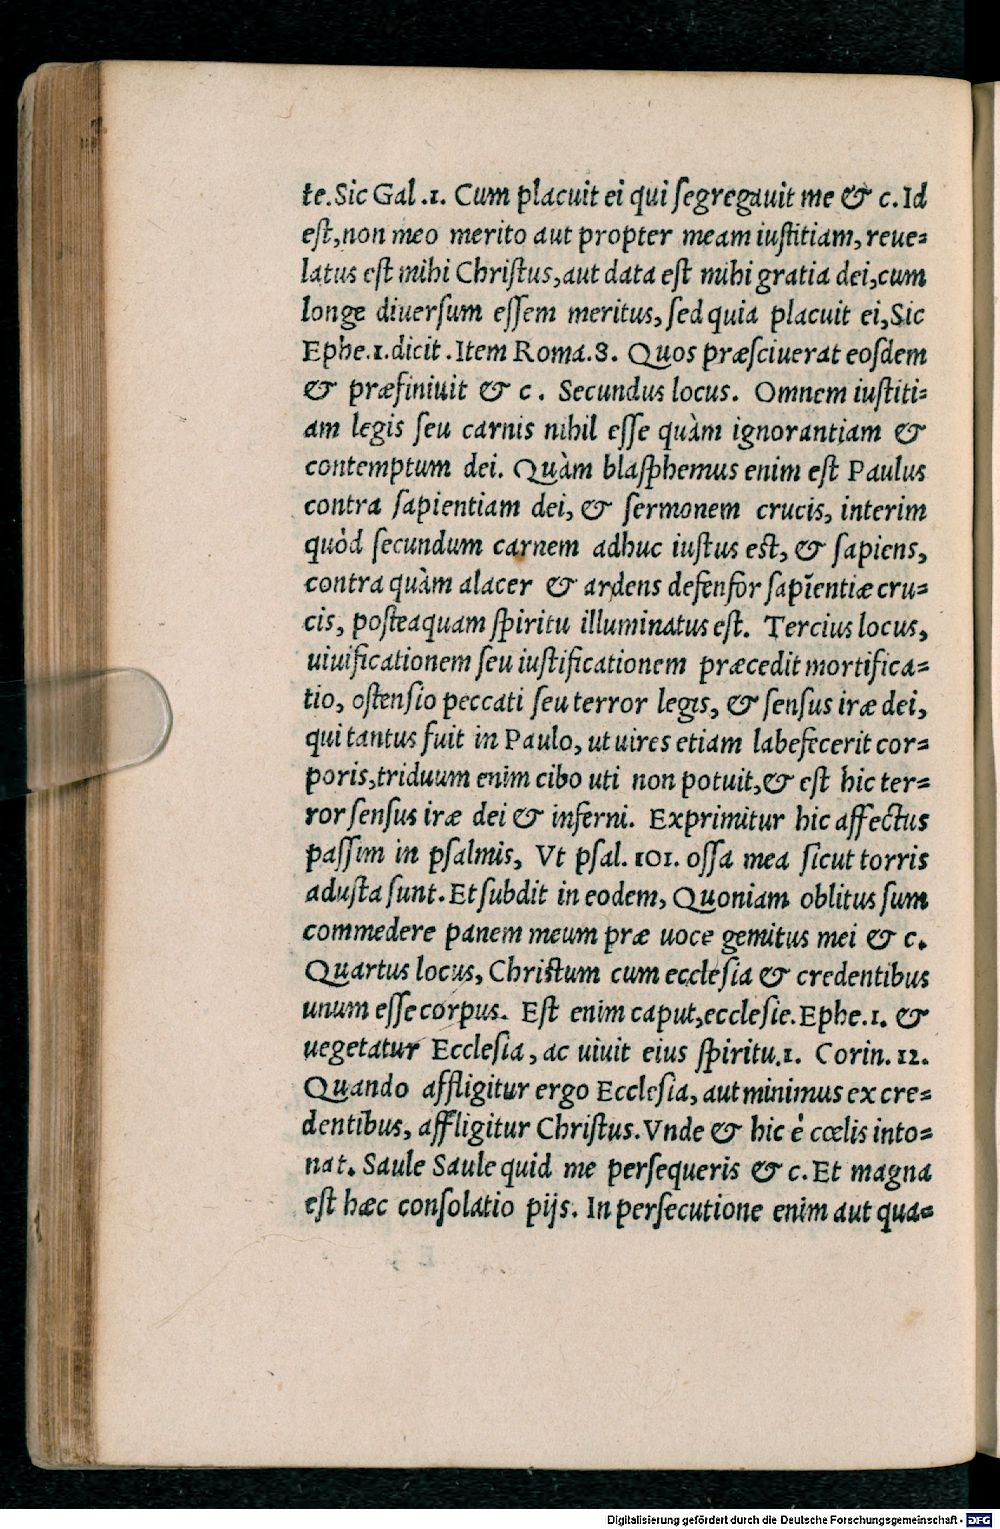 te. Sic Gal .1. Cum placuit ei qui ſegregauit me & c. Id
eſt, non meo merito aut propter meam iuſtitiam, reue⸗
latus eſt mihi Chriſtus, aut data eſt mihi gratia dei, cum
longe diuerſum eſſem meritus, ſed quia placuit ei, Sic
Ephe.1. dicit . Item Roma. 8. Quos præſciuerat eoſdem
& præfiniuit & c. Secundus locus. Omnem iuſtiti⸗
am legis ſeu carnis nihil eſſe quàm ignorantiam &
contemptum dei. Quàm blaſphemus enim eſt Paulus
contra ſapientiam dei, & ſermonem crucis, interim
quòd ſecundum carnem adhuc iuſtus est, & ſapiens,
contra quàm alacer & ardens defenſor ſapīentiæ cru⸗
cis, poſteaquam ſpiritu illuminatus eſt. Tercius locus,
uiuificationem ſeu iuſtificationem præcedit mortifica⸗
tio, oſtenſio peccati ſeu terror legis, & ſenſus iræ dei,
qui tantus fuit in Paulo, ut uires etiam labefecerit cor⸗
poris, triduum enim cibo uti non potuit, & eſt hic ter⸗
ror ſenſus iræ dei & inferni. Exprimitur hic affectus
paſſim in pſalmis, Vt pſal. 101. oſſa mea ſicut torris
aduſta ſunt. Et ſubdit in eodem, Quoniam oblitus ſum
commedere panem meum præ uoce gemitus mei & c.
Quartus locus, Chriſtum cum eccleſia & credentibus
unum eſſe corpus. Eſt enim caput, eccleſie. Ephe.1. &
uegetatur Eccleſia, ac uiuit eius ſpiritu.1. Corin. 12.
Quando affligitur ergo Eccleſia, aut minimus ex cre⸗
dentibus, affligitur Chriſtus. Vnde & hic è cœlis into⸗
nat. Saule Saule quid me perſequeris & c. Et magna
eſt hæc conſolatio pijs. In perſecutione enim aut qua⸗
Digitalisierung gefördert durch die Deutsche Forschungsgemeinschaft - DFG